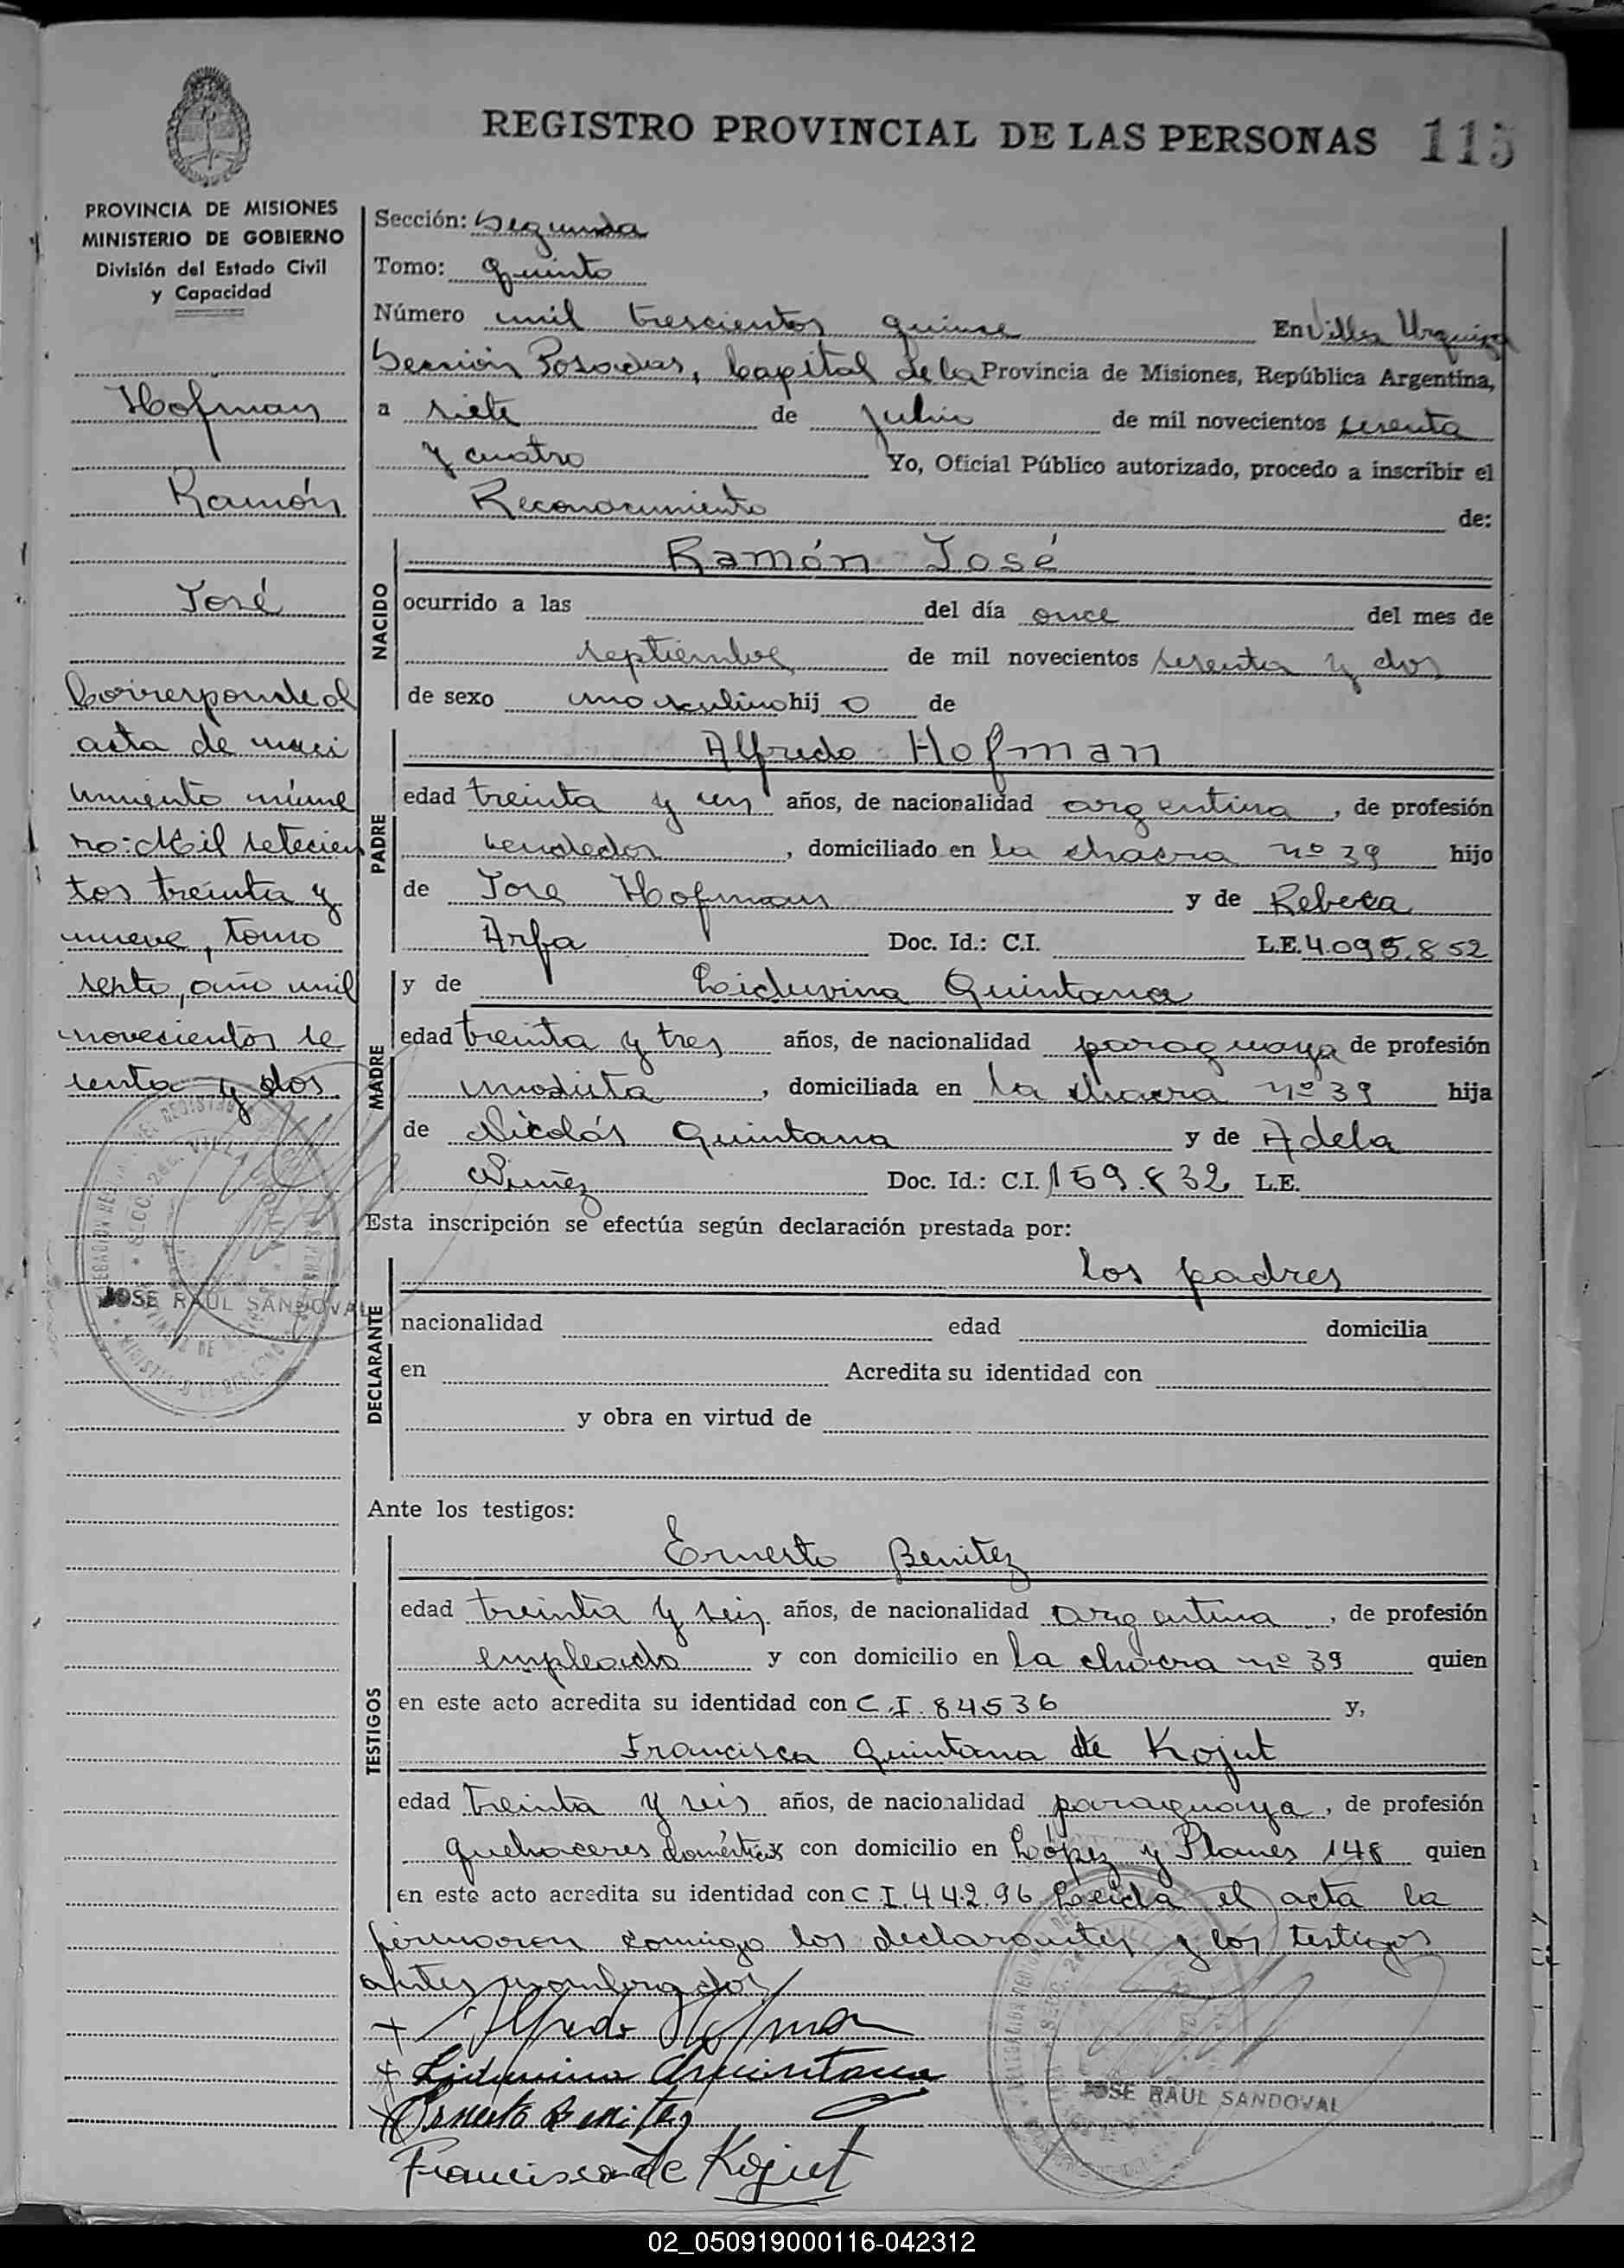 REGISTRO PROVINCIAL DE LAS PERSONAS 115
PROVINCIA DE MISIONES
MINISTERIO DE GOBIERNO
División del Estado Civil
y Capacidad
Hofman
Ramón
José
Corresponde al
acta de naci
miento núme
ro: Mil setecien
tos treinta y
nueve, tomo
sexto, año mil
novecientos se
senta y dos.
JOSE RAUL SANDOVAL
Sección: Segunda
Tomo: Quinto
Número mil trescientos quince En Villa Urquiza
Sección Posadas, Capital de la Provincia de Misiones, República Argentina,
a siete de julio de mil novecientos sesenta
y cuatro Yo, Oficial Público autorizado, procedo a inscribir el
Reconocimiento de:
NACIDO
Ramón José
ocurrido a las del día once del mes de
septiembre de mil novecientos sesenta y dos
de sexo masculino hij o de
PADRE
Alfredo Hofman
edad treinta y un años, de nacionalidad argentina, de profesión
vendedor, domiciliado en la chacra nº 39 hijo
de José Hofman y de Rebeca
Arfa Doc. Id.: C.I. L.E. 4.095.852
MADRE
y de Liduvina Quintana
edad treinta y tres años, de nacionalidad paraguaya de profesión
modista, domiciliada en la chacra nº 39 hija
de Nicolás Quintana y de Adela
Nuñez Doc. Id.: C.I. 159.832 L.E.
Esta inscripción se efectúa según declaración prestada por:
DECLARANTE
los padres
nacionalidad edad domicilia
en Acredita su identidad con
y obra en virtud de
Ante los testigos:
TESTIGOS
Ernesto Benitez
edad treinta y seis años, de nacionalidad argentina, de profesión
empleado y con domicilio en la chacra nº 39 quien
en este acto acredita su identidad con C.I. 84536 y,
Francisca Quintana de Kojut
edad treinta y seis años, de nacionalidad paraguaya, de profesión
quehaceres domésticos con domicilio en López y Planes 148 quien
en este acto acredita su identidad con C.I. 442.96 Leída el acta la
firmaron conmigo los declarantes y los testigos
antes nombrados
Alfredo Hofman
Liduvina Quintana
Ernesto Benitez
Francisca de Kojut
JOSE RAUL SANDOVAL
02_050919000116-042312